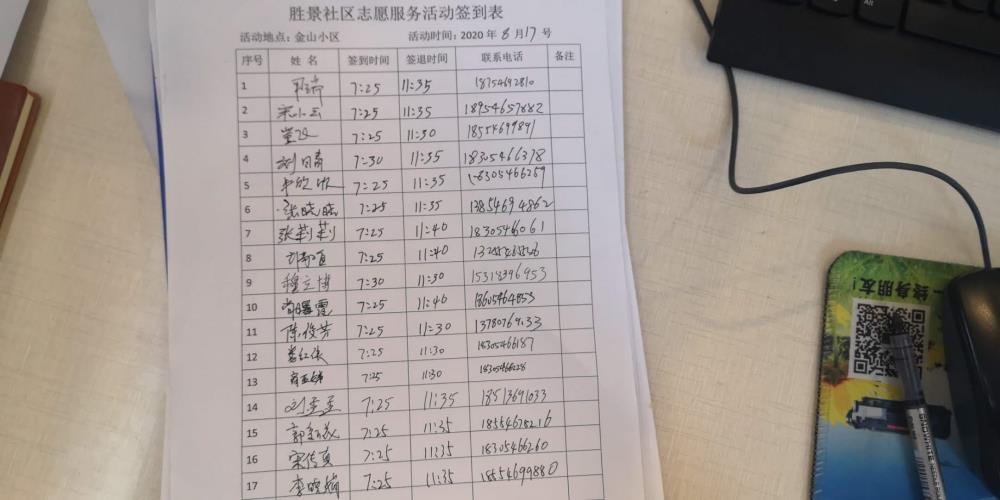 胜景社区志愿服务活动签到表
活动地点：金山小区 活动时间：2020 年 8 月 17 号
序号 姓 名 签到时间 签退时间 联系电话 备注
1 7:25 11:35 18754692810
2 宋小云 7:25 11:35 18954657882
3 7:25 11:30 18554699891
4 刘日青 7:30 11:35 18305466378
5 7:25 11:35 18305466289
6 张晓晓 7:25 11:35 13854694862
7 张莉莉 7:25 11:40 18305466061
8 7:25 11:40
9 穆立博 7:30 11:30 15318396953
10 7:25 11:40 18605464853
11 陈俊芳 7:25 11:30 13780769133
12 7:25 11:30 18305466187
13 7:25 11:30 18305466228
14 刘孟孟 7:25 11:35 18513691033
15 7:25 11:35 18554678216
16 宋传真 7:25 11:35 18305466260
17 李晓楠 7:25 11:35 18554699880
终身朋友！
Alt
SNOWHITE